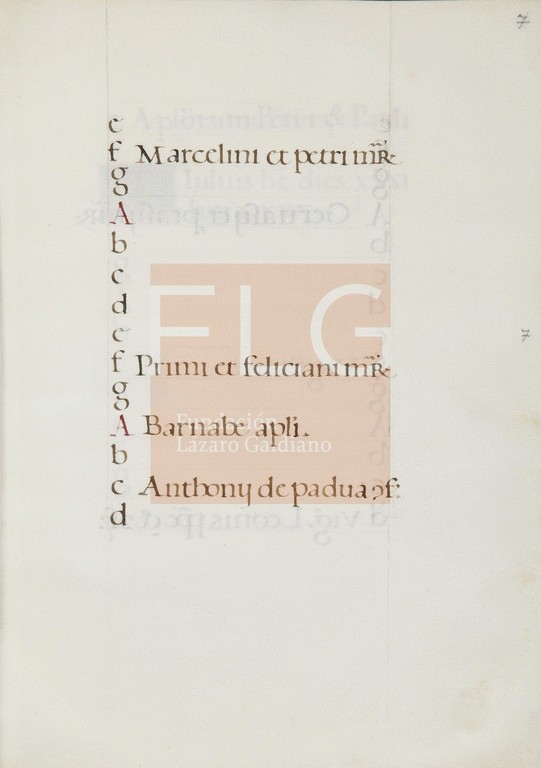 7
e
f Marcelini et petri mr̃R
g
A
b
c
d
e
f Primi et feliciani mr̃R
g
A Barnabe apli.
b
c Anthonij de padua ɔf:
d
FLG
Fundación
Lázaro Galdiano
7